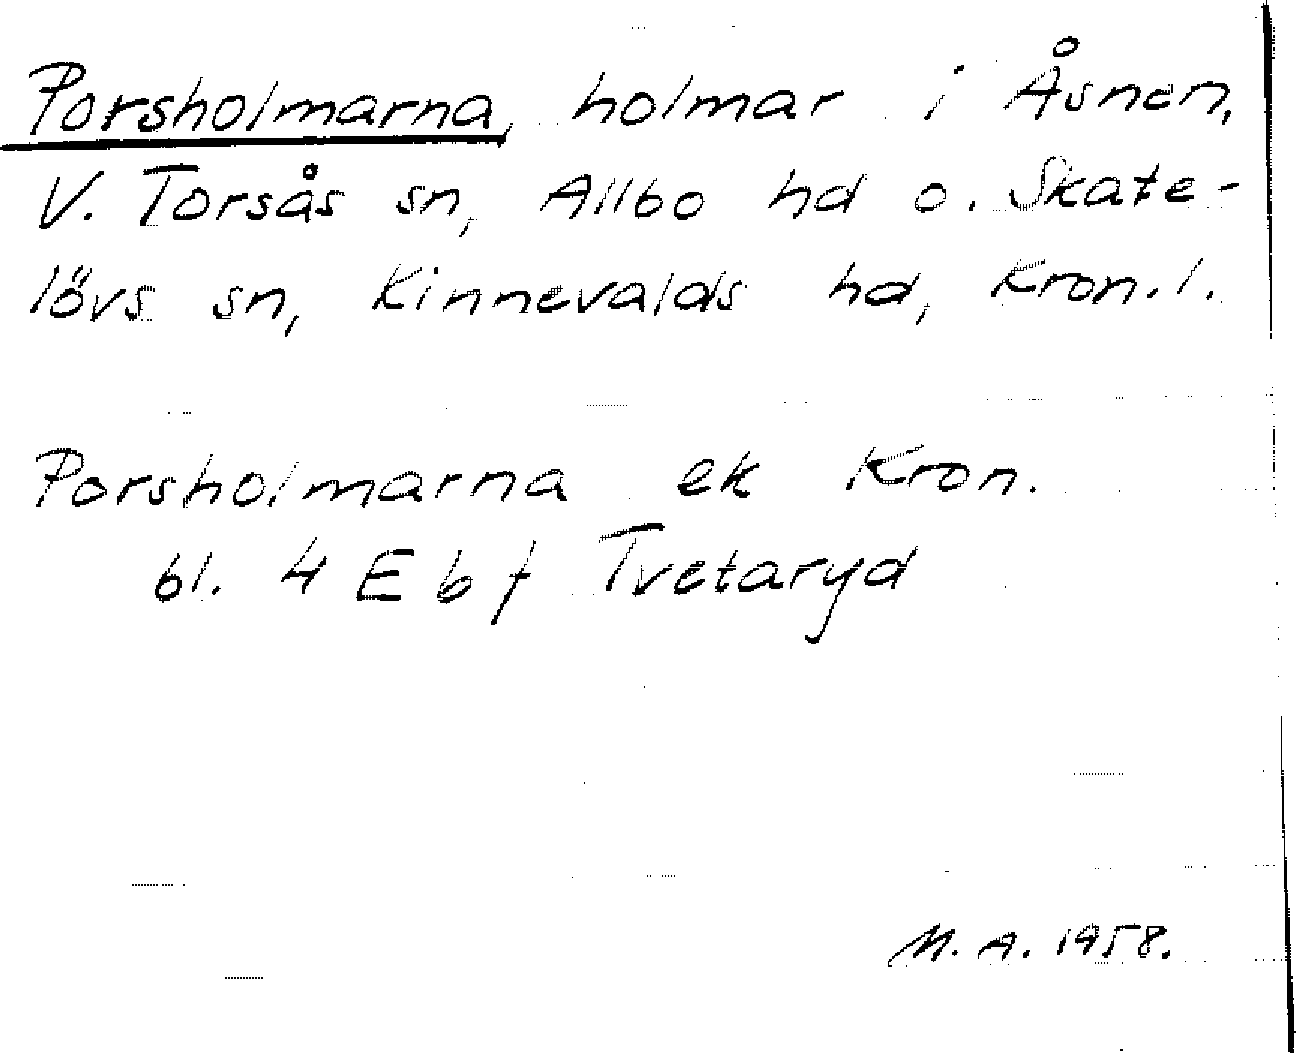 Porsholmarna, holmar i Åsnen,
V. Torsås sn, Allbo hd o. Skate-
lövs sn, Kinnevalds hd, Kron.l.
Porsholmarna ek Kron.
bl. 4 E b f Tvetaryd
M. A. 1958.